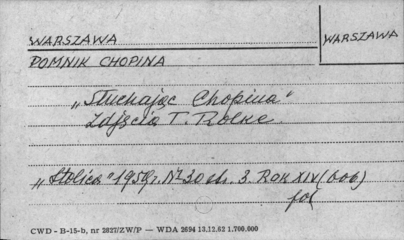 WARSZAWA
WARSZAWA
POMNIK CHOPINA
„Słuchając Chopina"
Zdjęcia T. Rolke
„Stolica" 1959 r. Nr 30 str. 3. ROK XIV (606)
fot
CWD - B-15-b, nr 2827/ZW/P — WDA 2694 13.12.62 1.700.000